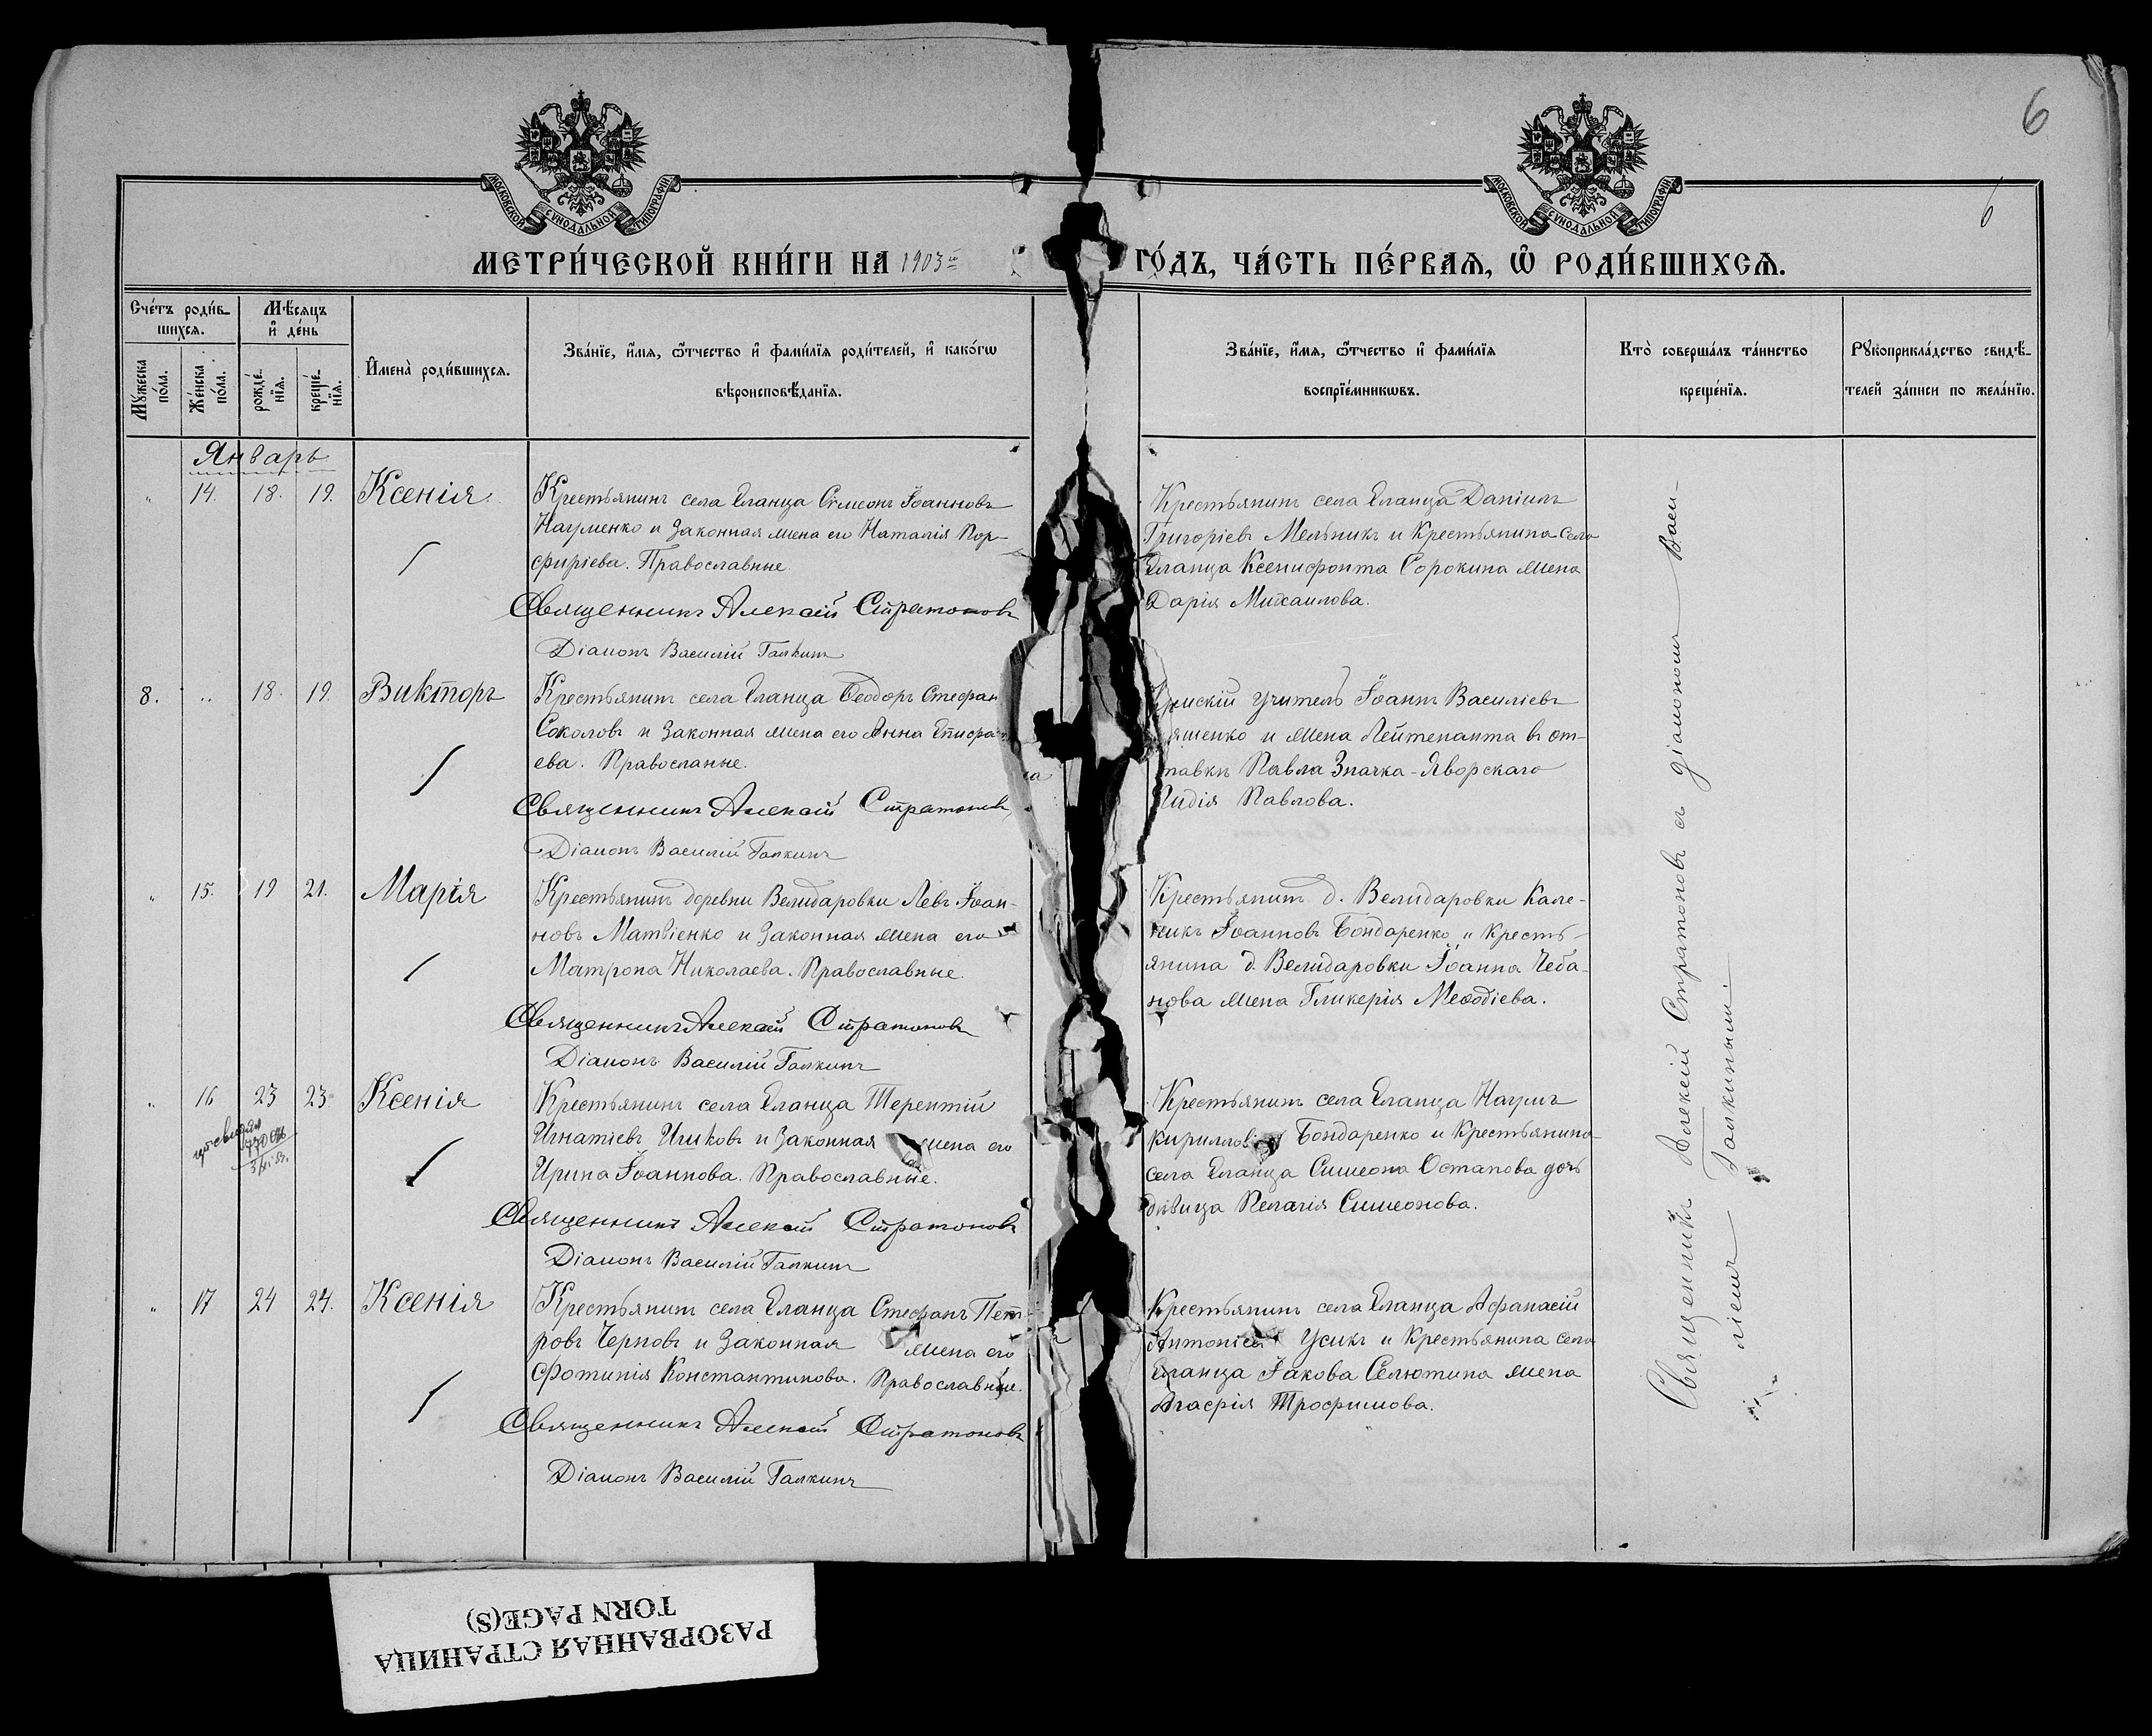 6
6
МОСКОВСКОЙ СѴНОДАЛЬНОЙ ТИПОГРАФІИ
МОСКОВСКОЙ СѴНОДАЛЬНОЙ ТИПОГРАФІИ
МЕТРИ́ЧЕСКОЙ КНИ́ГИ НА 1903й ГО́ДЪ, ЧА́СТЬ ПЕ́РВАѦ, Ѡ РОДИ́ВШИХСѦ.
Сче́тъ роди́в-
шихсѧ.
Мꙋжеска по́ла.
Же́нска по́ла.
Мѣ́сѧцъ
и҆ де́нь
рожде́-
нїѧ.
креще́-
нїѧ.
И҆мена̀ роди́вшихсѧ.
Зва́нїе, и҆́мѧ, ѻ҆́тчество и҆ фами́лїѧ роди́телей, и҆ како́гѡ
вѣроисповѣ́данїѧ.
Зва́нїе, и҆́мѧ, ѻ҆́тчество и҆ фами́лїѧ
воспрїе́мникѡвъ.
Кто̀ соверша́лъ та́инство
креще́нїѧ.
Рꙋкоприкла́дство свидѣ́-
телей за́писи по жела́нїю.
Январь
" 14. 18. 19. Ксенія
Крестьянинъ села Еланца Сѵмеонъ Іоанновъ
Науменко и законная жена его Наталія Пор-
фиріева. Православные.
Священникъ Алексій Стратоновъ
Діаконъ Василій Галкинъ
Крестьянинъ села Еланца Даніилъ
Григоріевъ Мельникъ и крестьянина села
Еланца Ксенифонта Сорокина жена
Дарія Михаилова.
8. " 18. 19. Викторъ
Крестьянинъ села Еланца Ѳеодоръ Стефан
Соколовъ и законная жена его Анна Епифа
ева. Правосланые.
Священникъ Алексій Стратоновъ
Діаконъ Василій Галкинъ
учитель Іоаннъ Василіевъ
яшенко и жена Лейтенанта въ от-
тавкѣ Павла Значка-Яворскаго
Лидія Павлова.
" 15. 19 21. Марія
Крестьянинъ деревни Велидаровки Левъ Іоан-
новъ Матвіенко и законная жена его
Матрона Николаева. Православные.
Священникъ Алексій Стратоновъ
Діаконъ Василій Галкинъ
Крестьянинъ д. Велидаровки Кале-
никъ Іоанновъ Бондаренко и кресть-
янина д. Велидаровки Іоанна Чеба-
нова жена Гликерія Меѳодіева.
" 16 23 23 Ксенія
Крестьянинъ села Еланца Терентій
Игнатіевъ Ишковъ и законная жена его
Ирина Іоаннова. Православные.
Священникъ Алексій Стратоновъ
Діаконъ Василій Галкинъ
Крестьянинъ села Еланца Наумъ
Кирилловъ Бондаренко и крестьянина
села Еланца Симеона Остапова дочь
дѣвица Пелагія Симеонова.
" 17 24 24. Ксенія
Крестьянинъ села Еланца Стефанъ Пет-
ровъ Черновъ и законная жена его
Фотинія Константинова. Православные.
Священникъ Алексій Стратоновъ
Діаконъ Василій Галкинъ
Крестьянинъ села Еланца Афанасій
Антоніевъ Усикъ и крестьянина села
Еланца Іакова Селютина жена
Агафія Трофимова.
Священникъ Алексій Стратоновъ съ діакономъ Васи-
ліемъ Галкинымъ.
РАЗОРВАННАЯ СТРАНИЦА
TORN PAGE(S)